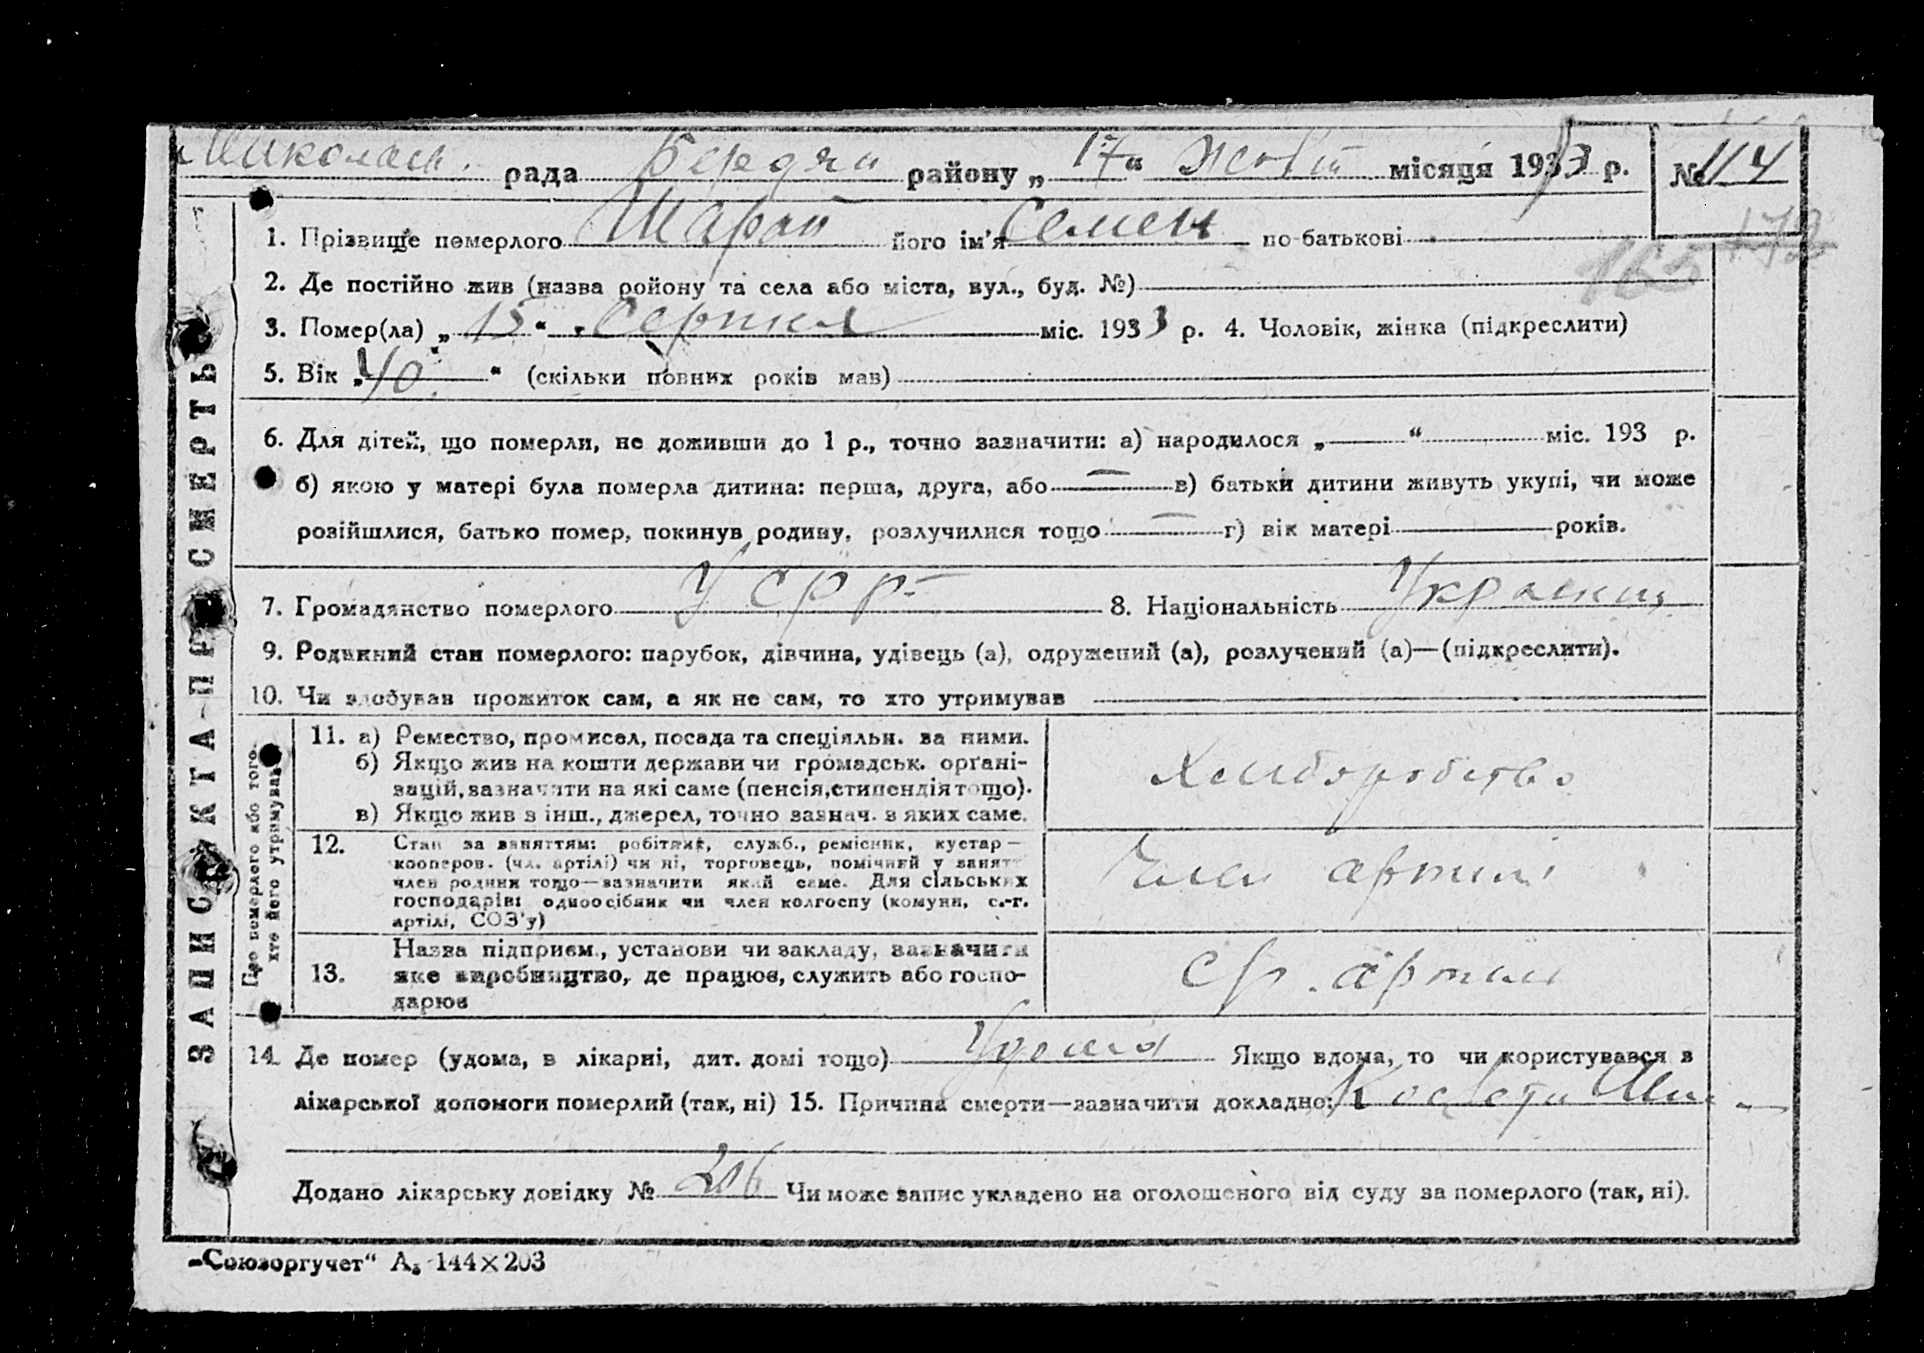 Миколаєв. рада Бердян району „17“ Жовт місяця 1933 р. № 114
165 172
1. Прізвище померлого Шарай його ім'я Семен по-батькові
2. Де постійно жив (назва ройону та села або міста, вул., буд. №)
3. Помер(ла) „15“ Серпня міс. 1933 р. 4. Чоловік, жінка (підкреслити)
5. Вік „40“ (скільки повних років мав)
6. Для дітей, що померли, не доживши до 1 р., точно зазначити: а) народилося „ “ міс. 193 р.
б) якою у матері була померла дитина: перша, друга, або — в) батьки дитини живуть укупі, чи може
розійшлися, батько помер, покинув родину, розлучилися тощо — г) вік матері років.
7. Громадянство померлого УСРР 8. Національність Українец
9. Родинний стан померлого: парубок, дівчина, удівець (а), одружений (а), розлучений (а)—(підкреслити).
10. Чи здобував прожиток сам, а як не сам, то хто утримував
ЗАПИСКА ПРО СМЕРТЬ
Про померлого або того,
хто його утримував
11. а) Ремество, промисел, посада та спеціяльн. за ними.
б) Якщо жив на кошти держави чи громадськ. органі-
зацій, зазначити на які саме (пенсія, стипендія тощо).
в) Якщо жив з інш., джерел, точно зазнач. з яких саме.
Хліборобство
12. Стан за заняттям: робітник, служб., ремісник, кустар—
кооперов. (чл. артілі) чи ні, торговець, помічний у занятт
член родини тощо—зазначити який саме. Для сільських
господарів: одноосібник чи член колгоспу (комуни, с.-г.
артілі, СОЗ'у)
Член артілі
13. Назва підприєм., установи чи закладу, зазначити
яке виробництво, де працюв, служить або госпо-
дарюв
артіль
14. Де помер (удома, в лікарні, дит. домі тощо) Удома Якщо вдома, то чи користувався в
лікарської допомоги померлий (так, ні) 15. Причина смерти—зазначити докладно:
Додано лікарську довідку № 206 Чи може запис укладено на оголошеного від суду за померлого (так, ні).
„Союзоргучет“ А₅ 144×203